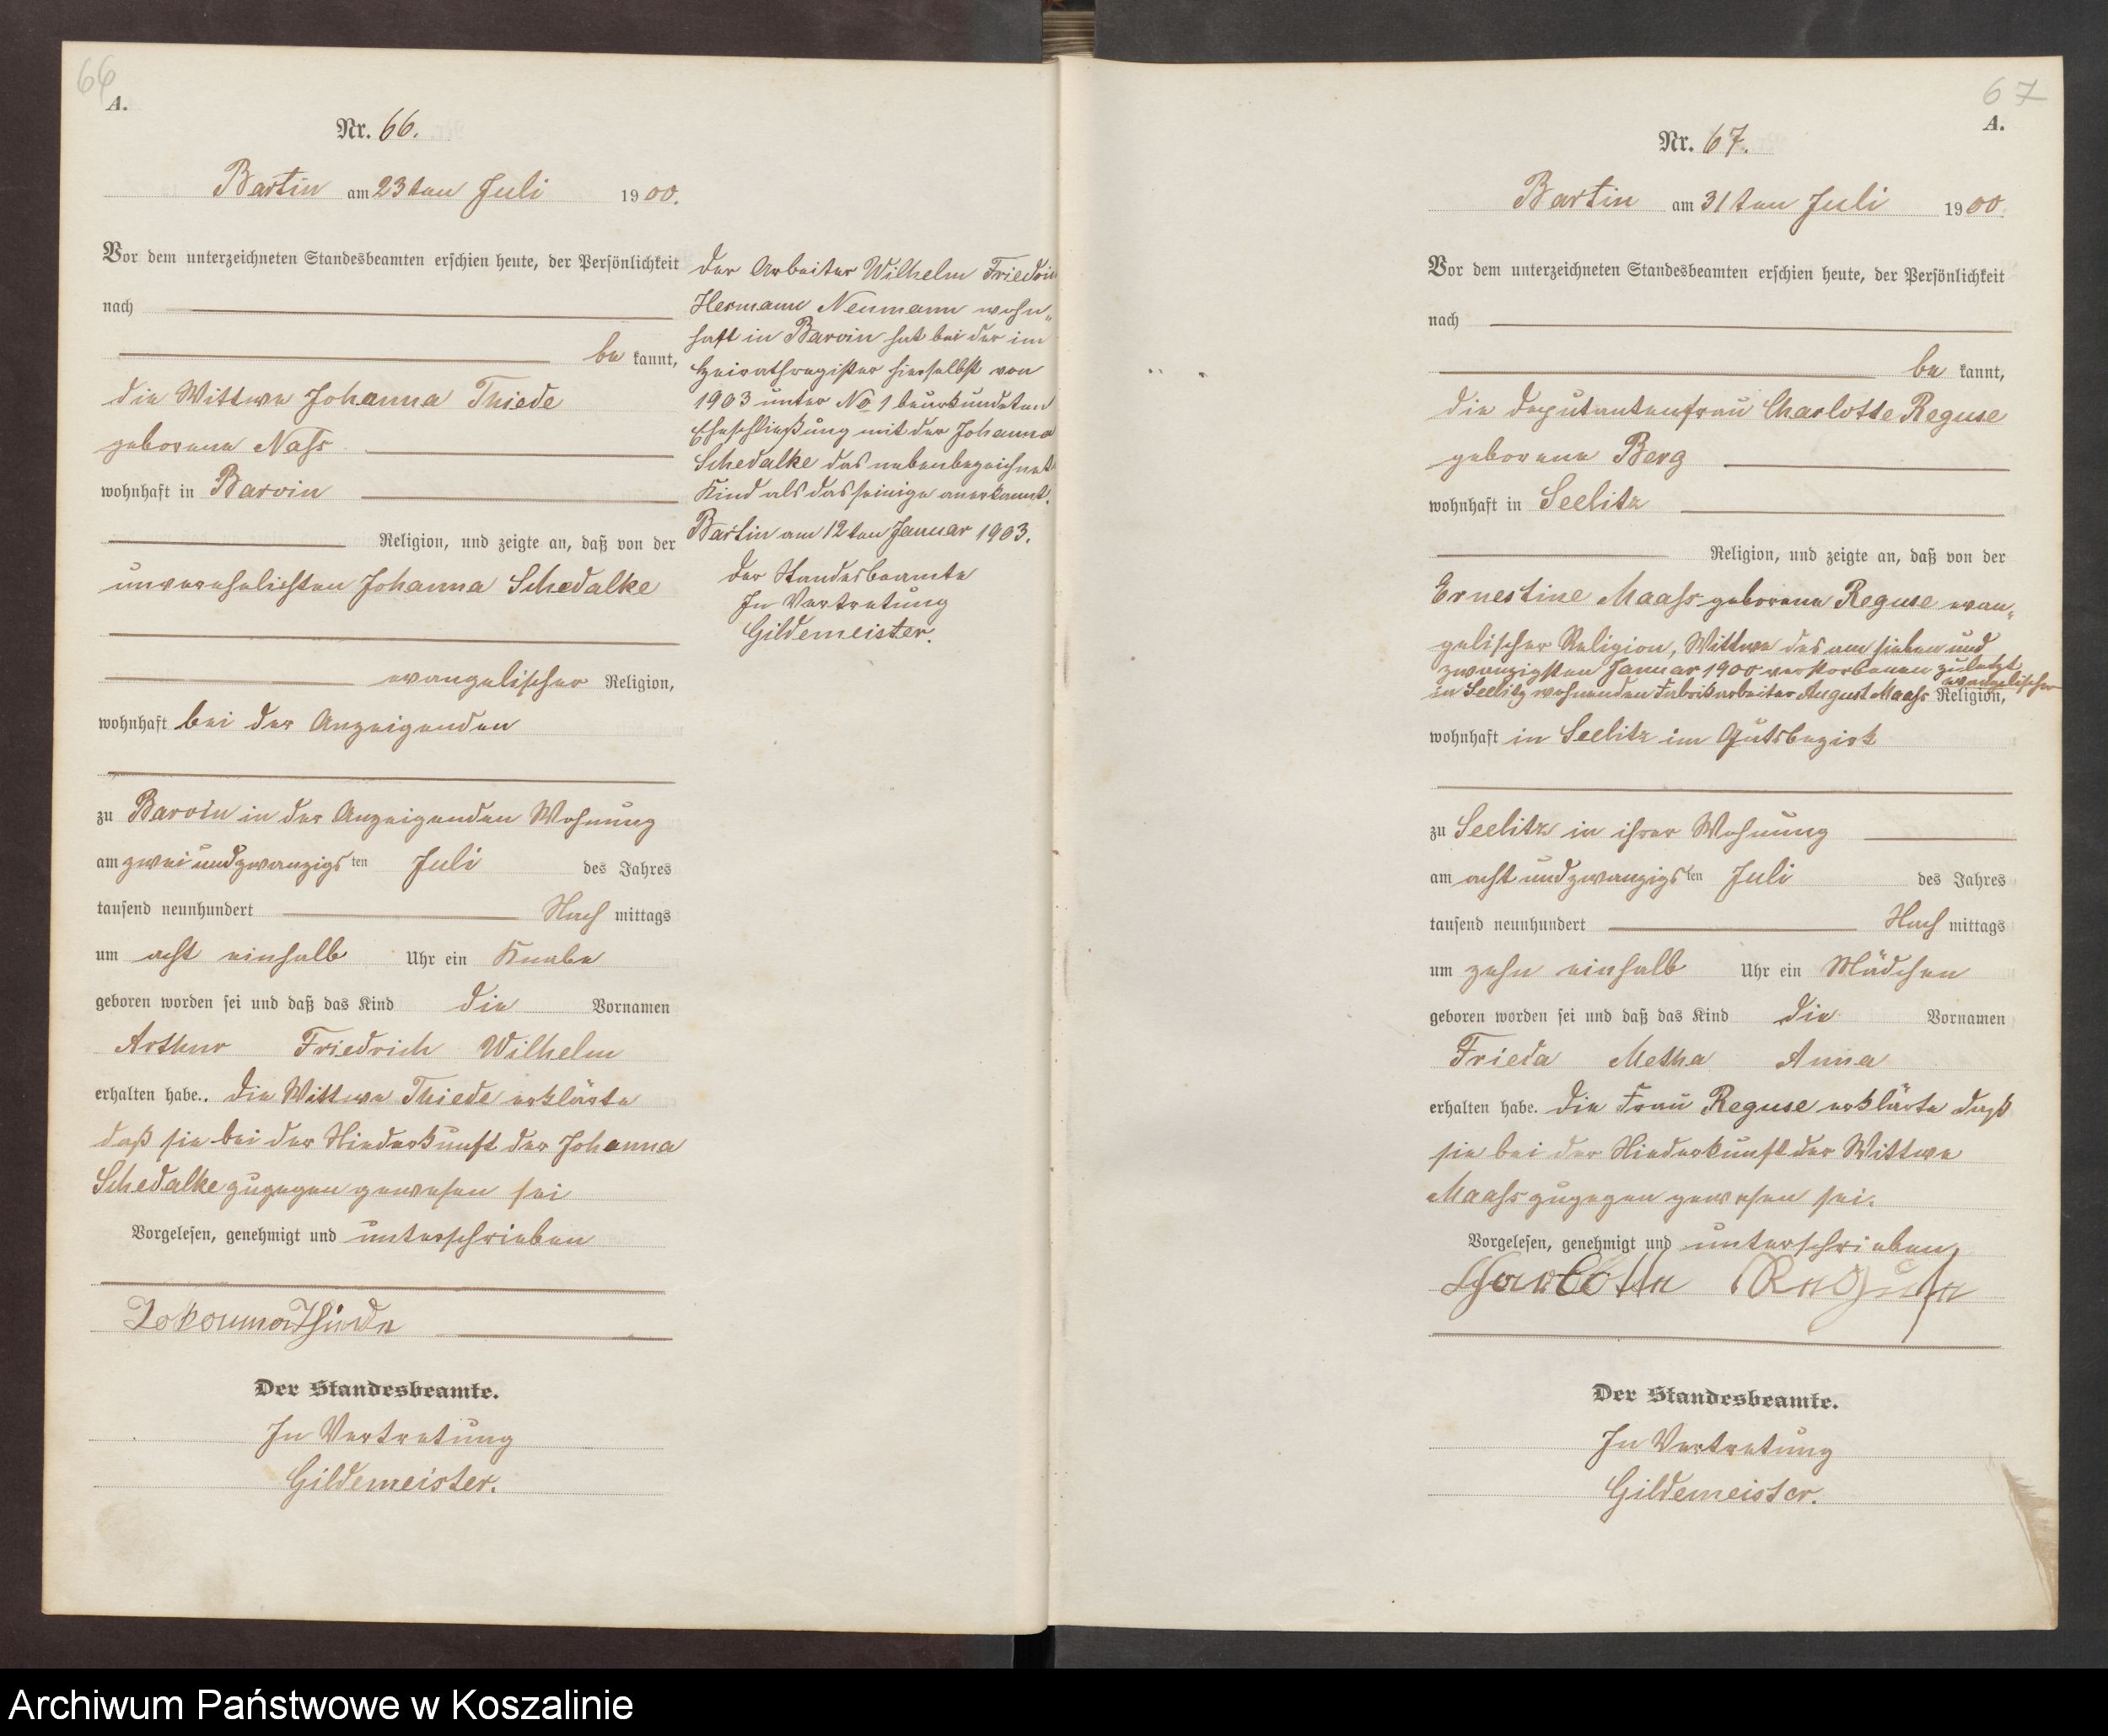 66
A.
Nr. 66.
Bartin am 23ten Juli 1900.
Vor dem unterzeichneten Standesbeamten erschien heute, der Persönlichkeit
nach
be kannt,
die Wittwe Johanna Thiede
geborene Nass
wohnhaft in Barvin
Religion, und zeigte an, daß von der
unverehelichten Johanna Schedalke
evangelischer Religion,
wohnhaft bei der Anzeigenden
zu Barvin in der Anzeigenden Wohnung
am zwei und zwanzigsten Juli des Jahres
tausend neunhundert Nach mittags
um acht einhalb Uhr ein Knabe
geboren worden sei und daß das Kind die Vornamen
Arthur Friedrich Wilhelm
erhalten habe. Die Wittwe Thiede erklärte
daß sie bei der Niederkunft der Johanna
Schedalke zugegen gewesen sei
Vorgelesen, genehmigt und unterschrieben
Johanna Thiede
Der Standesbeamte.
In Vertretung
Gildemeister.
Der Arbeiter Wilhelm Friedrich
Hermann Neumann wohn„
haft in Barvin hat bei der im
Heirathsregister hierselbst von
1903 unter No 1 beurkundeten
Eheschließung mit der Johanna
Schedalke das nebenbezeichnete
Kind als das seinige anerkannt.
Bartin am 12ten Januar 1903.
Der Standesbeamte
In Vertretung
Gildemeister.
67
A.
Nr. 67.
Bartin am 31ten Juli 1900.
Vor dem unterzeichneten Standesbeamten erschien heute, der Persönlichkeit
nach
be kannt,
die Deputantenfrau Charlotte Reguse
geborene Berg
wohnhaft in Seelitz
Religion, und zeigte an, daß von der
Ernestine Maass geborene Reguse evan„
gelischer Religion, Wittwe des am sieben und
zwanzigsten Januar 1900 verstorbenen zuletzt
in Seelitz wohnenden Fabrikarbeiter August Maass evangelischer Religion,
wohnhaft in Seelitz im Gutsbezirk
zu Seelitz in ihrer Wohnung
am acht und zwanzigsten Juli des Jahres
tausend neunhundert Nach mittags
um zehn einhalb Uhr ein Mädchen
geboren worden sei und daß das Kind die Vornamen
Frieda Metha Anna
erhalten habe. Die Frau Reguse erklärte daß
sie bei der Niederkunft der Wittwe
Maass zugegen gewesen sei.
Vorgelesen, genehmigt und unterschrieben
Charlotte Reguse
Der Standesbeamte.
In Vertretung
Gildemeister.
Archiwum Państwowe w Koszalinie